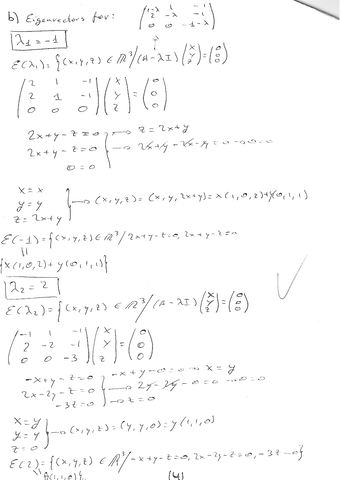 b) Eigenvectors for: (1-λ 1 -1
2 -λ -1
0 0 -1-λ)
λ1 = -1
E(λ1) = {(x,y,z) ∈ ℝ³ / (A-λI) (x y z) = (0 0 0)
(2 1 -1
2 1 -1
0 0 0) (x y z) = (0 0 0)
2x+y-z=0 → z=2x+y
2x+y-z=0 → 2x+y-2x-y=0 → 0=0
0=0
x=x
y=y → (x,y,z) = (x,y,2x+y) = x(1,0,2)+y(0,1,1)
z=2x+y
E(-1) = {(x,y,z) ∈ ℝ³ / 2x+y-z=0, 2x+y-z=0
{x(1,0,2)+y(0,1,1)}
λ2 = 2
E(λ2) = {(x,y,z) ∈ ℝ³ / (A-λI) (x y z) = (0 0 0)
(-1 1 -1
2 -2 -1
0 0 -3) (x y z) = (0 0 0)
-x+y-z=0 → -x+y-0=0 → x=y
2x-2y-z=0 → 2y-2y-0=0 → 0=0
-3z=0 → z=0
x=y
y=y → (x,y,z) = (y,y,0) = y(1,1,0)
z=0
E(2) = {(x,y,z) ∈ ℝ³ / -x+y-z=0, 2x-2y-z=0, -3z=0}
(1,1,0)}
(4)